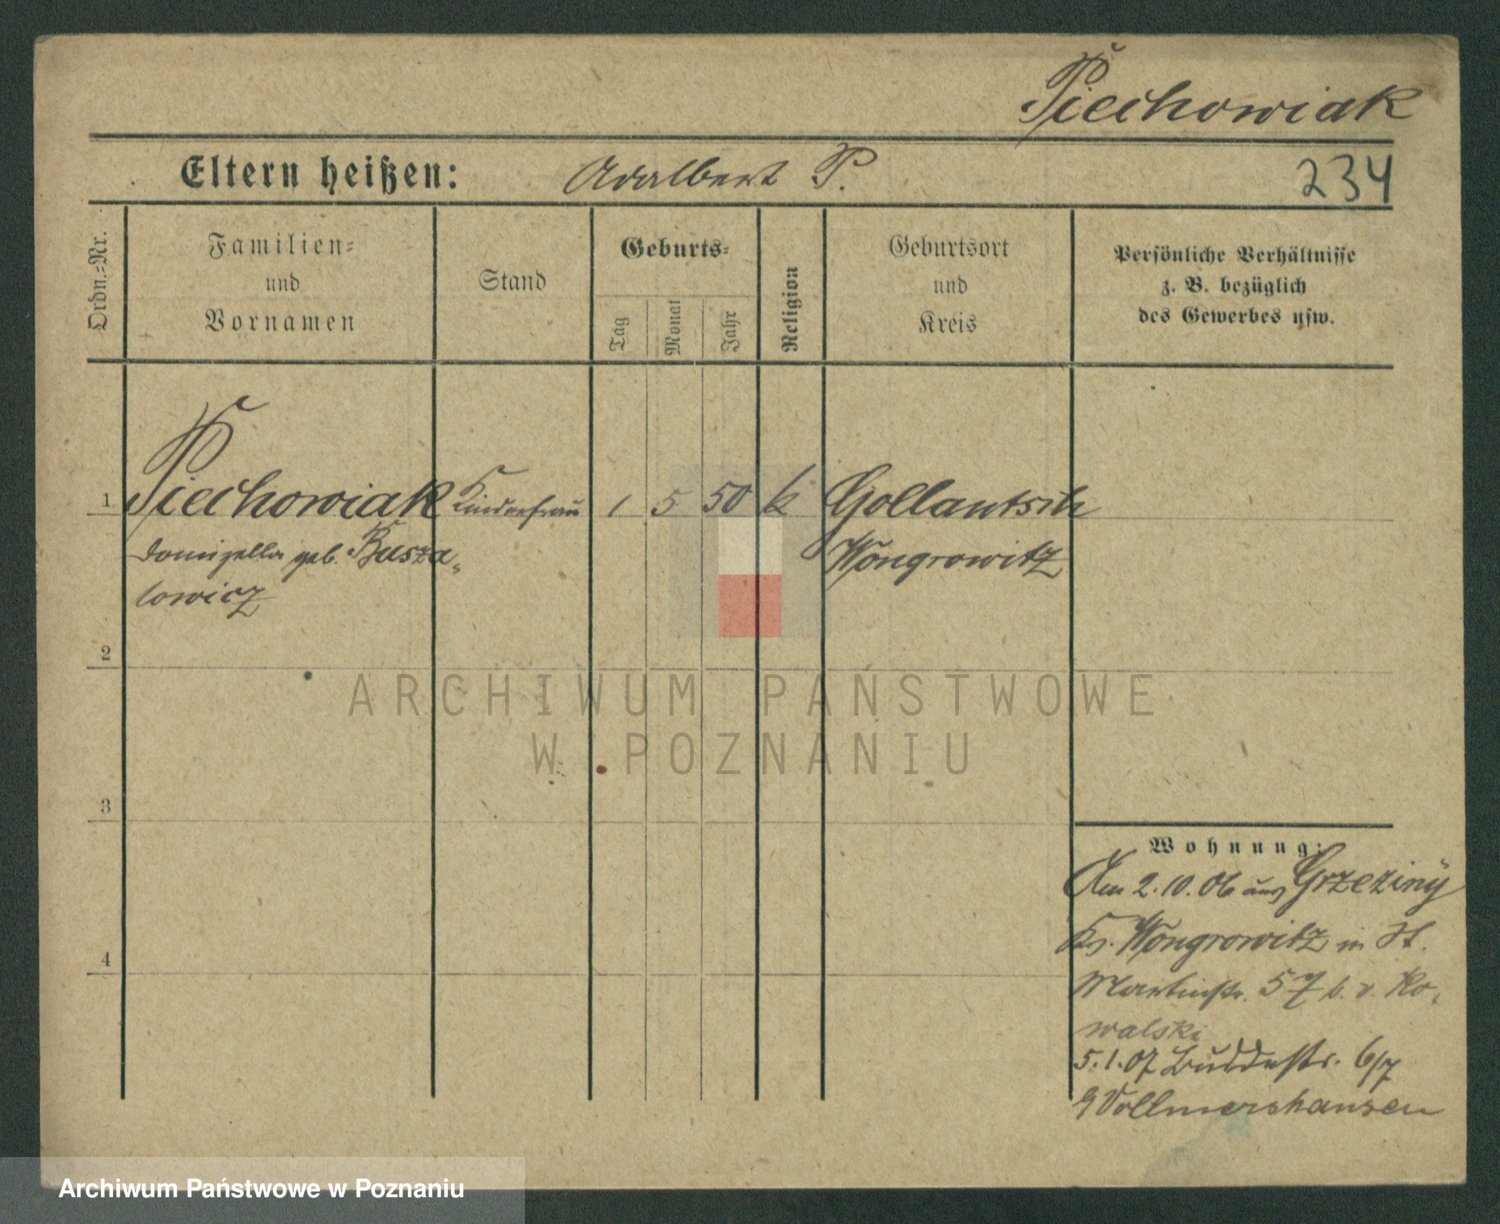 Piechowiak
Eltern heißen: Adalbert P.
234
Ordn.-Nr.
Familien-
und
Vornamen
Stand
Geburts-
Tag
Monat
Jahr
Religion
Geburtsort
und
Kreis
Persönliche Verhältnisse
z. B. bezüglich
des Gewerbes usw.
1 Piechowiak Kinderfrau 1 5 50 k Gollantsch
geb. Busza- Wongrowitz
lowicz
2
ARCHIWUM PAŃSTWOWE
W POZNANIU
3
Wohnung:
Am 2.10.06 aus Grzeziny
Kr. Wongrowitz in St.
Martinstr. 57 b. v. Ko-
walski
5.1.07 Buddestr. 6/7
Vollmershausen
4
Archiwum Państwowe w Poznaniu